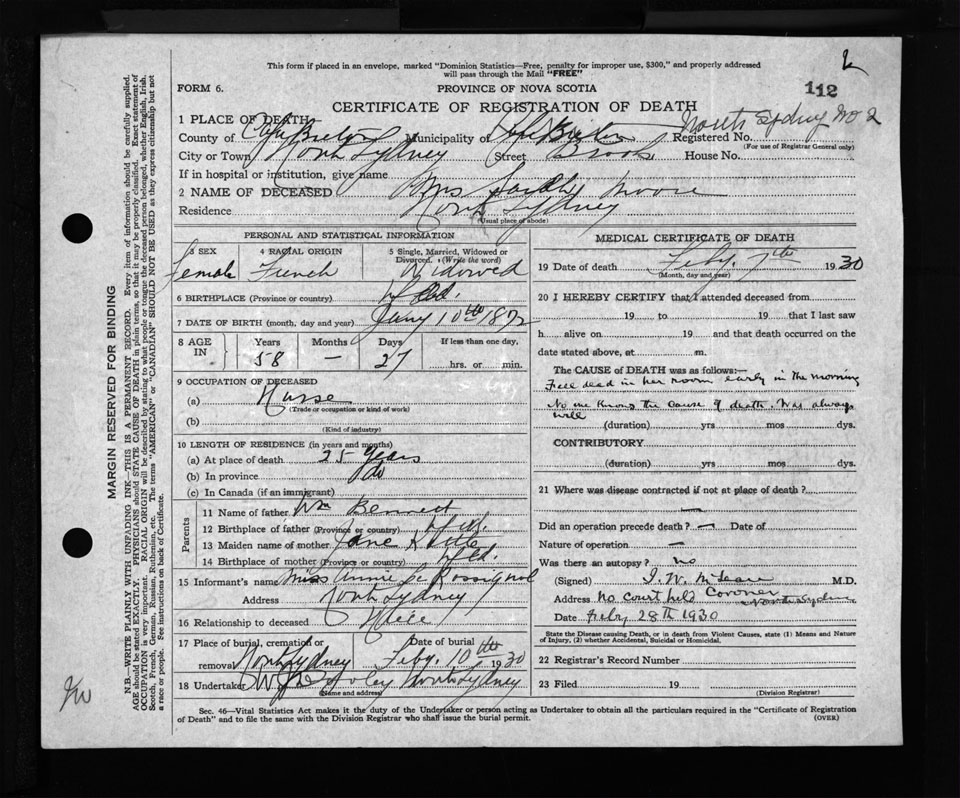 This form if placed in an envelope, marked "Dominion Statistics—Free, penalty for improper use, $300," and properly addressed
will pass through the Mail "FREE"
FORM 6.
PROVINCE OF NOVA SCOTIA
112
CERTIFICATE OF REGISTRATION OF DEATH
1 PLACE OF DEATH
County of Cape Breton Municipality of Cape Breton Registered No. North Sydney No 2
(For use of Registrar General only)
City or Town North Sydney Street Brook House No.
If in hospital or institution, give name
2 NAME OF DECEASED Mrs Sarah Moore
Residence North Sydney
(Usual place of abode)
PERSONAL AND STATISTICAL INFORMATION
3 SEX Female
4 RACIAL ORIGIN French
5 Single, Married, Widowed or Divorced. (Write the word) Widowed
6 BIRTHPLACE (Province or country) Nfld.
7 DATE OF BIRTH (month, day and year) Jany 10th 1872
8 AGE IN Years 58 Months — Days 27 If less than one day, hrs. or min.
9 OCCUPATION OF DECEASED
(a) Nurse
(Trade or occupation or kind of work)
(b)
(Kind of industry)
10 LENGTH OF RESIDENCE (in years and months)
(a) At place of death 25 years
(b) In province do
(c) In Canada (if an immigrant)
Parents
11 Name of father Wm Bennett
12 Birthplace of father (Province or country) Nfld.
13 Maiden name of mother Jane
14 Birthplace of mother (Province or country) Nfld.
15 Informant's name Miss Annie Le Rossignol
Address North Sydney
16 Relationship to deceased Niece
17 Place of burial, cremation or removal North Sydney Date of burial Feby. 10th 1930
18 Undertaker North Sydney
(Name and address)
MEDICAL CERTIFICATE OF DEATH
19 Date of death Feby. 7th 1930
(Month, day and year)
20 I HEREBY CERTIFY that I attended deceased from
19 to 19 that I last saw
h alive on 19 and that death occurred on the
date stated above, at m.
The CAUSE OF DEATH was as follows:—
Fell dead in her room early in the morning
No one knows the cause of death. Was always
well
(duration) yrs mos dys.
CONTRIBUTORY
(duration) yrs mos dys.
21 Where was disease contracted if not at place of death?
—
Did an operation precede death? — Date of
Nature of operation —
Was there an autopsy? no
(Signed) M.D.
Address No court held Coroner North Sydney
Date Feby 28th 1930
State the Disease causing Death, or in death from Violent Causes, state (1) Means and Nature
of Injury, (2) whether Accidental, Suicidal or Homicidal.
22 Registrar's Record Number
23 Filed 19
(Division Registrar)
Sec. 46—Vital Statistics Act makes it the duty of the Undertaker or person acting as Undertaker to obtain all the particulars required in the "Certificate of Registration
of Death" and to file the same with the Division Registrar who shall issue the burial permit.
(OVER)
MARGIN RESERVED FOR BINDING
N.B.—WRITE PLAINLY WITH UNFADING INK—THIS IS A PERMANENT RECORD. Every item of information should be carefully supplied.
AGE should be stated EXACTLY. PHYSICIANS should STATE CAUSE OF DEATH in plain terms, so that it may be properly classified. Exact statement of
OCCUPATION is very important. RACIAL ORIGIN will be described by stating to what people or tongue the deceased person belonged, whether English, Irish,
Scotch, French, German, Russian, Ruthenian, etc. The terms "AMERICAN" or "CANADIAN" SHOULD NOT BE USED as they express citizenship but not
a race or people. See instructions on back of Certificate.